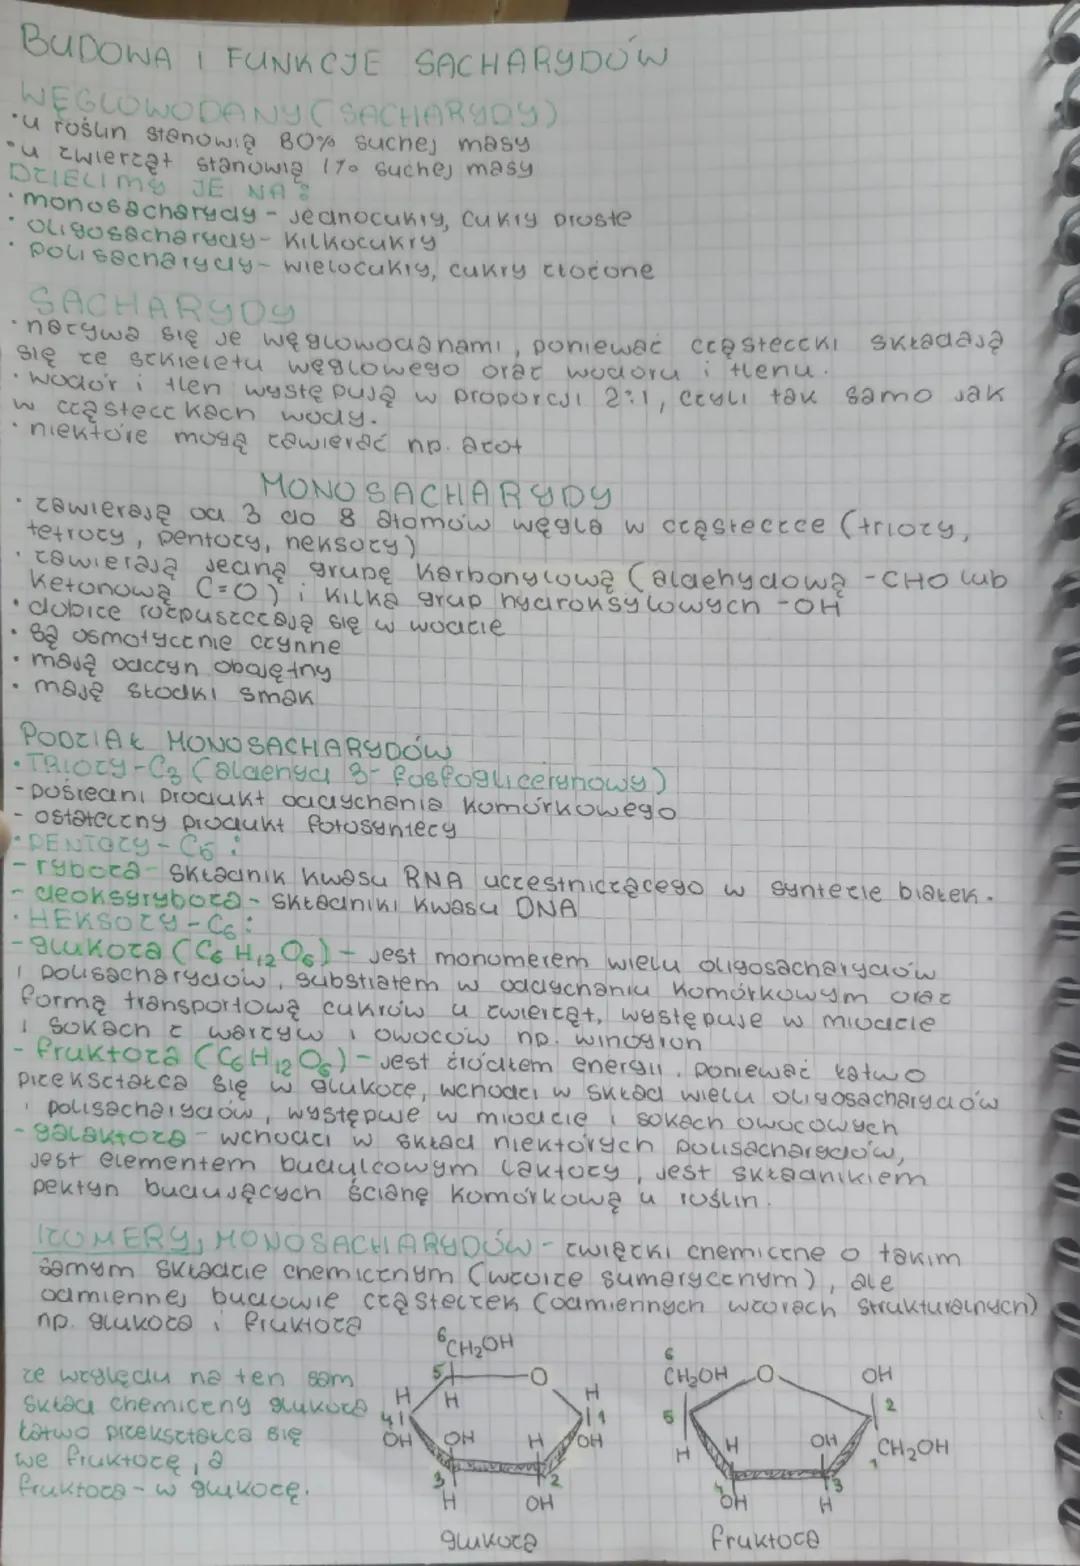 BUDOWA I FUNKCJE SACHARYDÓW
WĘGLOWODANY (SACHARYDY)
•u roślin stanowią 80% suchej masy
•u zwierząt stanowią 1% suchej masy
DZIELIMY JE NA:
•monosacharydy - jednocukry, cukry proste
•oligosacharydy - kilkocukry
•polisacharydy - wielocukry, cukry złożone
SACHARYDY
•nazywa się je węglowodanami, ponieważ cząsteczki składają
się ze szkieletu węglowego oraz wodoru i tlenu.
•wodór i tlen występują w proporcji 2:1, czyli tak samo jak
w cząsteczkach wody.
•niektóre mogą zawierać np. azot
MONOSACHARYDY
•zawierają od 3 do 8 atomów węgla w cząsteczce (triozy,
tetrozy, pentozy, heksozy)
•zawierają jedną grupę karbonylową (aldehydową -CHO lub
ketonową C=O) i kilka grup hydroksylowych -OH
•dobrze rozpuszczają się w wodzie
•są osmotycznie czynne
•mają odczyn obojętny
•mają słodki smak
PODZIAŁ MONOSACHARYDÓW
•TRIOZY-C3 (aldehyd 3-fosfoglicerynowy)
-pośredni produkt oddychania komórkowego
-ostateczny produkt fotosyntezy
•PENTOZY-C5:
-ryboza-składnik kwasu RNA uczestniczącego w syntezie białek.
-deoksyryboza-składniki kwasu DNA
•HEKSOZY-C6:
-glukoza (C6H12O6)-jest monomerem wielu oligosacharydów
i polisacharydów, substratem w oddychaniu komórkowym oraz
formą transportową cukrów u zwierząt, występuje w miodzie
i sokach z warzyw i owoców np. winogron
-fruktoza (C6H12O6)-jest źródłem energii, ponieważ łatwo
przekształca się w glukozę, wchodzi w skład wielu oligosacharydów
i polisacharydów, występuje w miodzie i sokach owocowych
-galaktoza-wchodzi w skład niektórych polisacharydów,
jest elementem budulcowym laktozy, jest składnikiem
pektyn budujących ścianę komórkową u roślin.
IZOMERY MONOSACHARYDÓW-związki chemiczne o takim
samym składzie chemicznym (wzorze sumarycznym), ale
odmiennej budowie cząsteczek (odmiennych wzorach strukturalnych)
np. glukoza i fruktoza
ze względu na ten sam
skład chemiczny glukoza
łatwo przekształca się
we fruktozę, a
fruktoza - w glukozę.
6 CH2OH
5 O
H H H
4 1
OH OH H OH
3 2
H OH
glukoza
6
CH2OH O OH
5 2
H H OH CH2OH
1
4 3
OH H
fruktoza